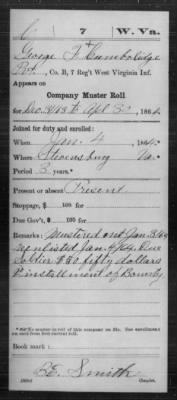 C | 7 | W. Va.
George F Cumbelidge
Pvt., Co. B, 7 Reg't West Virginia Inf.
Appears on
Company Muster Roll
for Dec 31/63 to Apl 30, 1864.
Joined for duty and enrolled:
When Jan. 4, 1864.
Where Va.
Period 3 years.*
Present or absent Present
Stoppage, $ 100 for
Due Gov't, $ 100 for
Remarks: Mustered out Jan 3/64
reenlisted Jan. 4/64 Due
soldier $50 fifty dollars
1st installment of Bounty
*See enrollment on card from first control roll.
Book mark:
E. Smith
(858) Copyist.